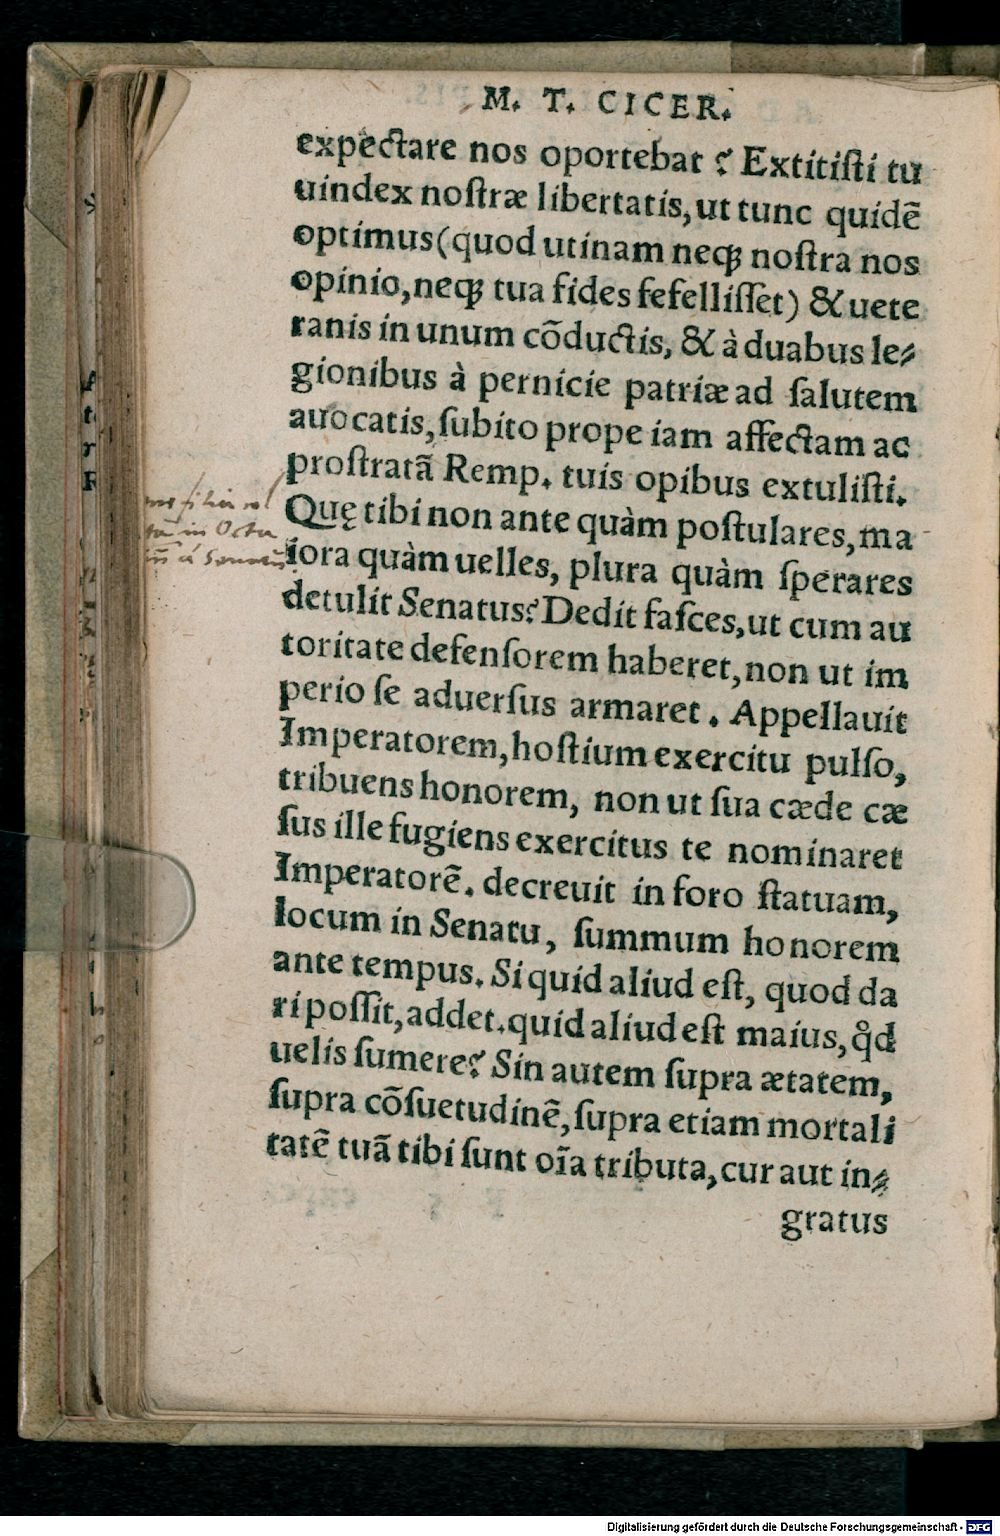 M. T. CICER.
expectare nos oportebat? Extitiſti tu
uindex noſtræ libertatis, ut tunc quidẽ
optimus (quod utinam neqꝫ noſtra nos
opinio, neqꝫ tua fides fefelliſſet) & uete
ranis in unum cõductis, & à duabus le⸗
gionibus à pernicie patriæ ad ſalutem
auocatis, ſubito prope iam affectam ac
proſtratã Remp. tuis opibus extuliſti.
Quę tibi non ante quàm poſtulares, ma
iora quàm uelles, plura quàm ſperares
detulit Senatus? Dedit faſces, ut cum au
toritate defenſorem haberet, non ut im
perio ſe aduerſus armaret. Appellauit
Imperatorem, hoſtium exercitu pulſo,
tribuens honorem, non ut ſua cæde cæ
ſus ille fugiens exercitus te nominaret
Imperatorẽ. decreuit in foro ſtatuam,
locum in Senatu, ſummum honorem
ante tempus. Si quid aliud eſt, quod da
ri poſſit, addet. quid aliud eſt maius, qͦd
uelis ſumere? Sin autem ſupra ætatem,
ſupra cõſuetudinẽ, ſupra etiam mortali
tatẽ tuã tibi ſunt oĩa tributa, cur aut in⸗
gratus
in Octa
á Senatu
Digitalisierung gefördert durch die Deutsche Forschungsgemeinschaft - DFG